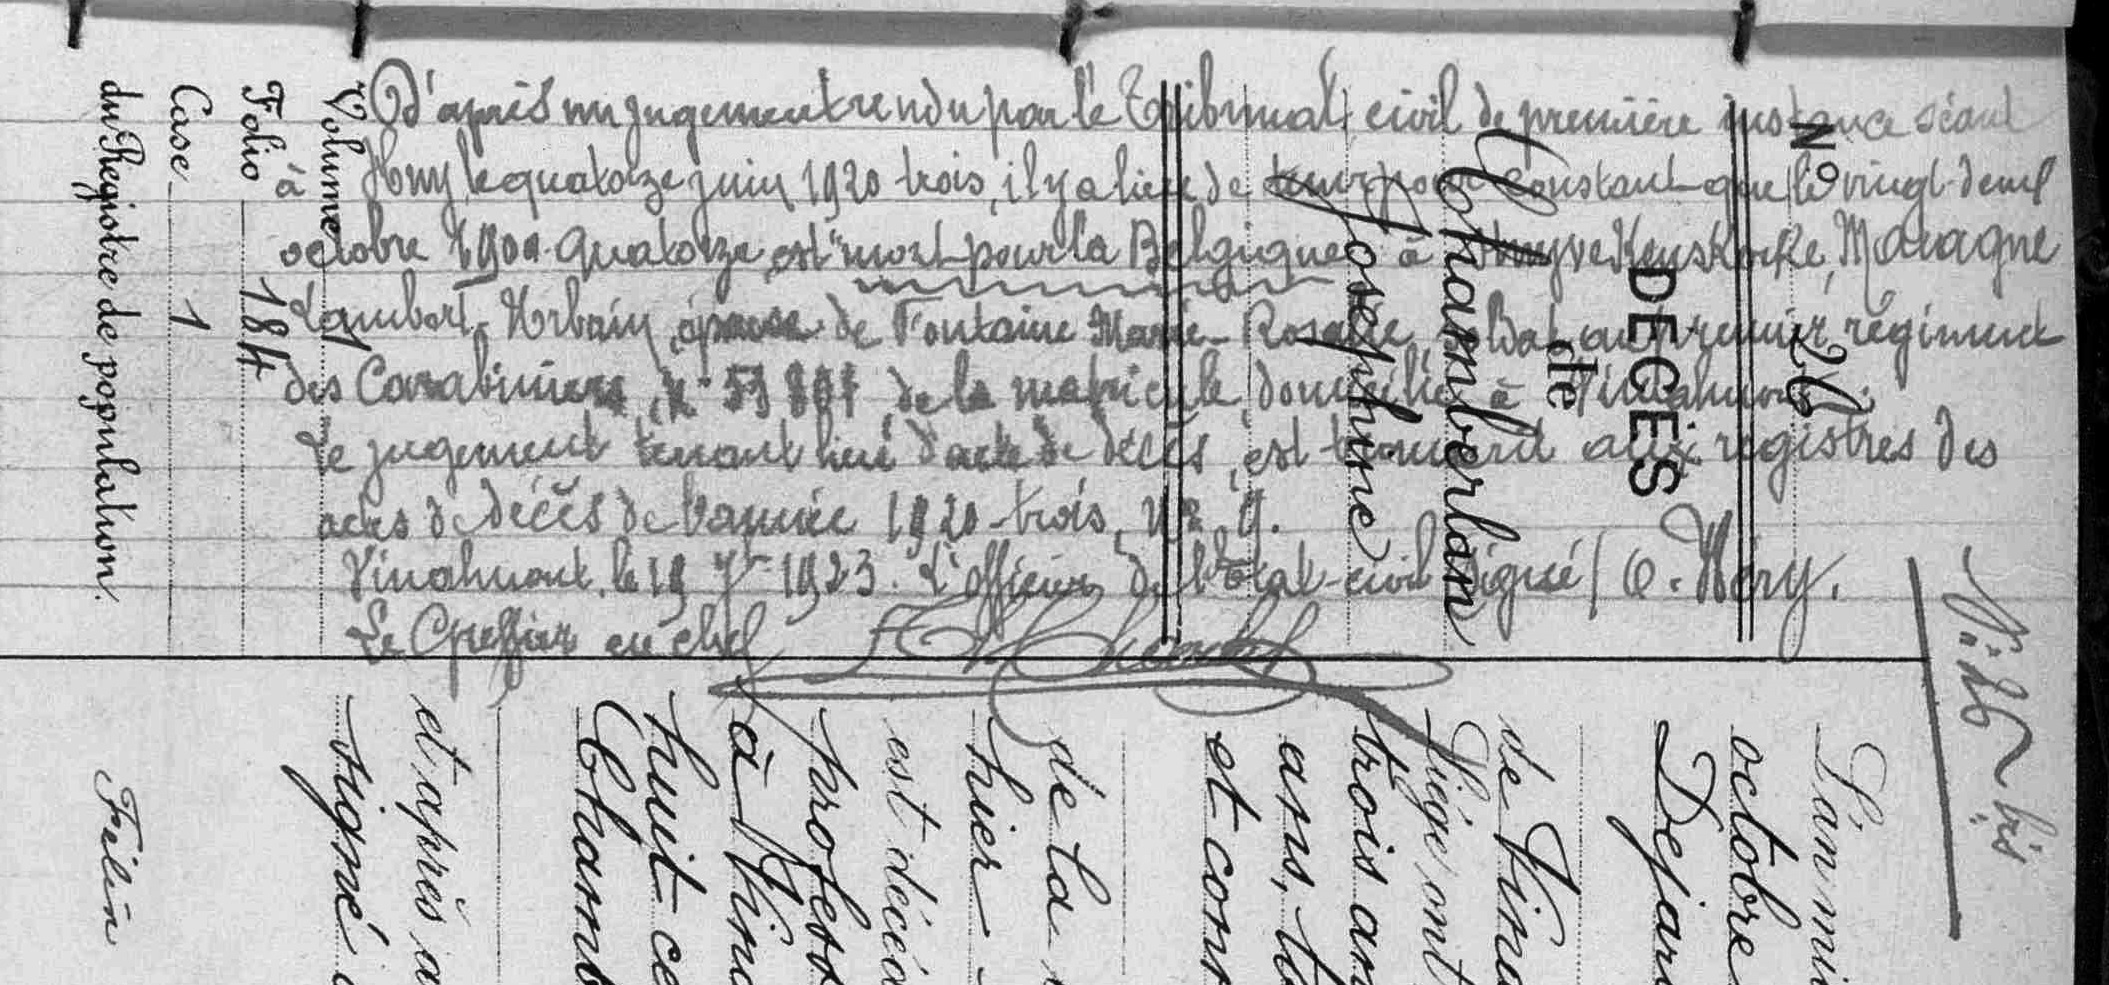 D'après un jugement rendu par le Tribunal civil de première instance séant
à Huy, le quatorze juin 1920 trois, il y a lieu de tenir pour constant que le vingt-deux
octobre 1900 quatorze est "mort pour la Belgique" à Maragne
Lambert, Urbain, époux de Fontaine Marie-Rosalie, soldat au premier régiment
des Carabiniers, de la matricule, domicilié à Vinalmont.
Le jugement tenant lieu d'acte de décès, est transcrit aux registres des
actes de décès de l'année 1920-trois, n° 9.
Vinalmont, le 19 7bre 1923. L'officier de l'Etat-civil signé/ O. Méry.
Le Greffier en chef
N° 26
DÉCÈS
de
Chamberlan
Joséphine
Volume 1
Folio 184
Case 1
du Registre de population.
N: 26 bis
L'an mi
octobre
Dejar
de Vina
Liége ont
trois an
ans, to
et con
de la
hier
est décéd
profess
à Vina
huit ce
Chamb
et après a
signé
Félin